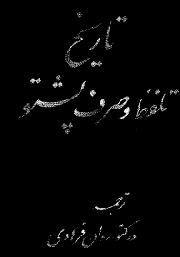 تاریخ
تلفظ و صرف پشتو
ترجمه
دکتور روان فرهادی